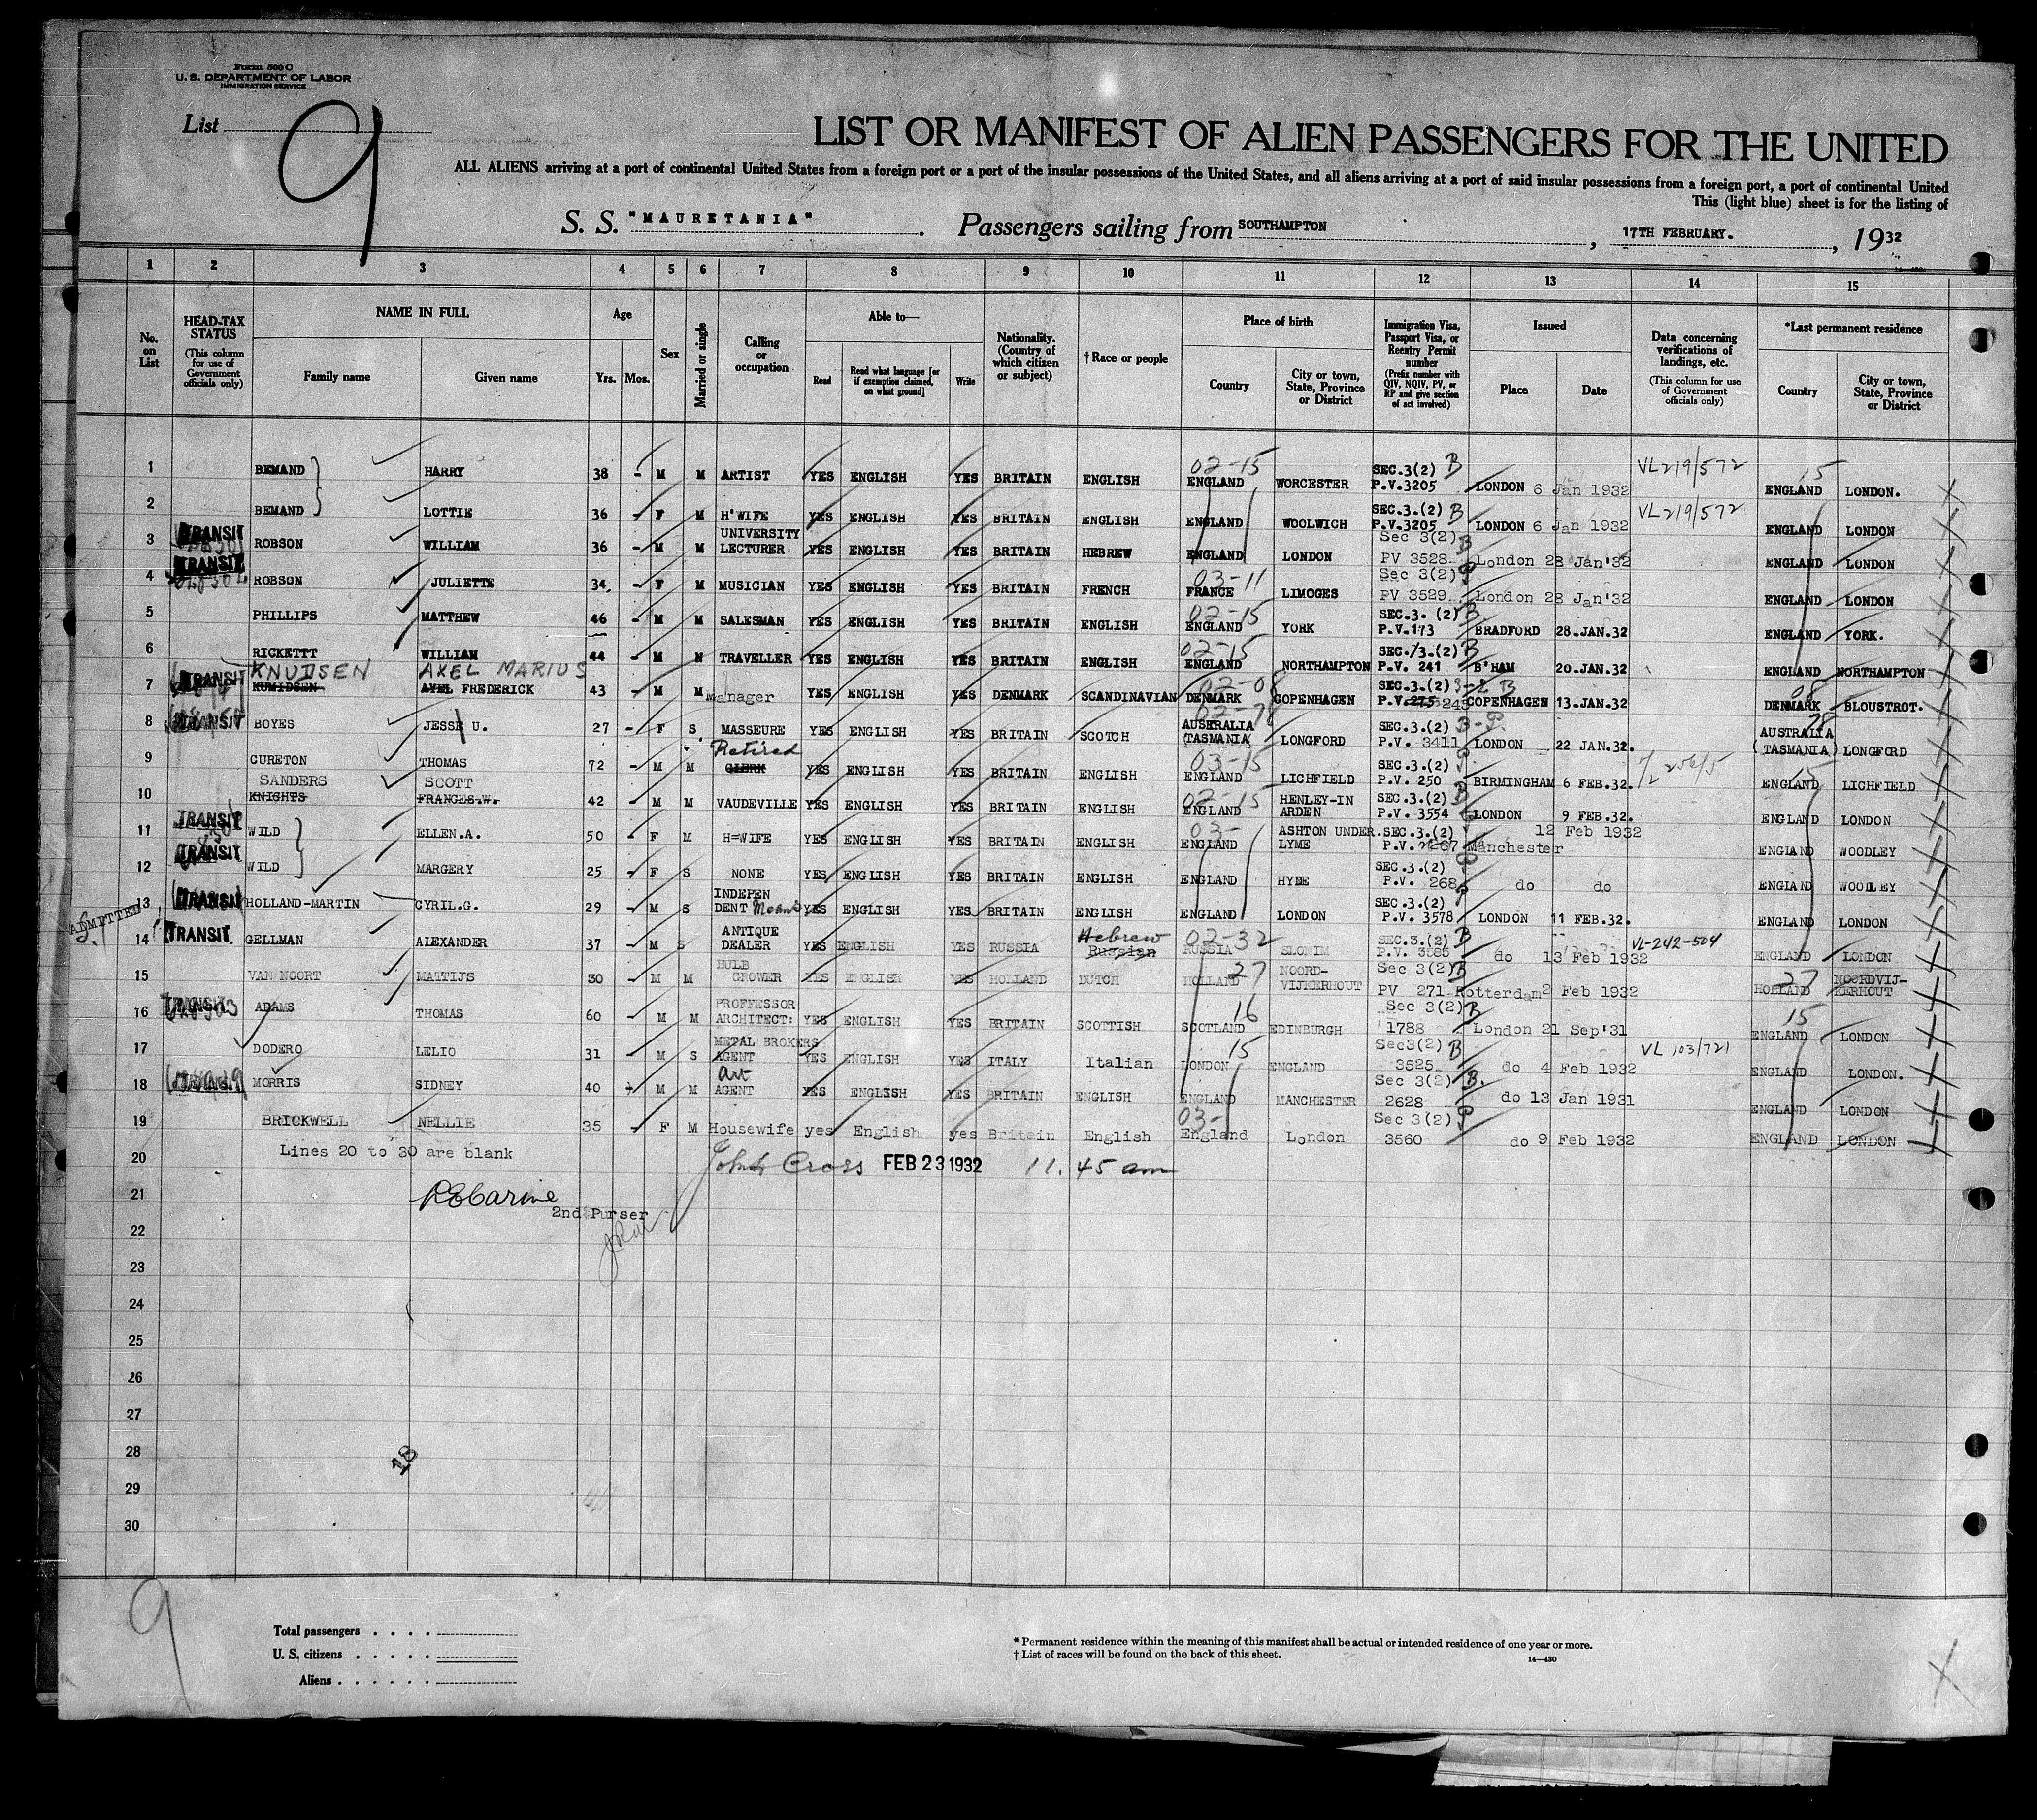 Form 500 C
U. S. DEPARTMENT OF LABOR
IMMIGRATION SERVICE
List 9
LIST OR MANIFEST OF ALIEN PASSENGERS FOR THE UNITED
ALL ALIENS arriving at a port of continental United States from a foreign port or a port of the insular possessions of the United States, and all aliens arriving at a port of said insular possessions from a foreign port, a port of continental United
This (light blue) sheet is for the listing of
S. S. "MAURETANIA". Passengers sailing from SOUTHAMPTON, 17TH FEBRUARY., 1932
14—430
1 2 3 4 5 6 7 8 9 10 11 12 13 14 15
No. on List
HEAD-TAX STATUS (This column for use of Government officials only)
NAME IN FULL
Family name Given name
Age
Yrs. Mos.
Sex
Married or single
Calling or occupation
Able to—
Read Read what language [or if exemption claimed, on what ground] Write
Nationality. (Country of which citizen or subject)
† Race or people
Place of birth
Country City or town, State, Province or District
Immigration Visa, Passport Visa, or Reentry Permit number (Prefix number with QIV, NQIV, PV, or RP and give section of act involved)
Issued
Place Date
Data concerning verifications of landings, etc. (This column for use of Government officials only)
*Last permanent residence
Country City or town, State, Province or District
1 BEMAND HARRY 38 - M M ARTIST YES ENGLISH YES BRITAIN ENGLISH 02-15 ENGLAND WORCESTER SEC.3(2) B P.V.3205 LONDON 6 Jan 1932 VL219/572 15 ENGLAND LONDON.
2 BEMAND LOTTIE 36 - F M H'WIFE YES ENGLISH YES BRITAIN ENGLISH ENGLAND WOOLWICH SEC.3.(2) B P.V.3205 LONDON 6 Jan 1932 VL219/572 ENGLAND LONDON
3 TRANSIT ROBSON WILLIAM 36 - M M UNIVERSITY LECTURER YES ENGLISH YES BRITAIN HEBREW ENGLAND LONDON Sec 3(2) B PV 3528 London 28 Jan'32 ENGLAND LONDON
4 TRANSIT ROBSON JULIETTE 34 - F M MUSICIAN YES ENGLISH YES BRITAIN FRENCH 03-11 FRANCE LIMOGES Sec 3(2) PV 3529 London 28 Jan'32 ENGLAND LONDON
5 PHILLIPS MATTHEW 46 - M M SALESMAN YES ENGLISH YES BRITAIN ENGLISH 02-15 ENGLAND YORK SEC.3. (2) B P.V.173 BRADFORD 28.JAN.32 ENGLAND YORK.
6 RICKETTT WILLIAM 44 - M M TRAVELLER YES ENGLISH YES BRITAIN ENGLISH 02-15 ENGLAND NORTHAMPTON SEC./3.(2) B P.V. 241 B'HAM 20.JAN.32 ENGLAND NORTHAMPTON
KNUDSEN AXEL MARIUS
7 TRANSIT KUMIDSEN AXEL FREDERICK 43 - M M Manager YES ENGLISH YES DENMARK SCANDINAVIAN 02-08 DENMARK COPENHAGEN SEC.3.(2) 3-2 B P.V. 245 COPENHAGEN 13.JAN.32 08 DENMARK BLOUSTROT.
8 TRANSIT BOYES JESSE U. 27 - F S MASSEURE YES ENGLISH YES BRITAIN SCOTCH 02-78 AUSTRALIA (TASMANIA) LONGFORD SEC.3.(2) 3-P. P.V. 3411 LONDON 22 JAN.32. 78 AUSTRALIA (TASMANIA) LONGFORD
9 CURETON THOMAS 72 - M M Retired CLERK YES ENGLISH YES BRITAIN ENGLISH 03-15 ENGLAND LICHFIELD SEC.3.(2) P P.V. 250 BIRMINGHAM 6 FEB.32. 15 ENGLAND LICHFIELD
SANDERS SCOTT
10 KNIGHTS FRANCES.W. 42 - M M VAUDEVILLE YES ENGLISH YES BRITAIN ENGLISH 02-15 ENGLAND HENLEY-IN ARDEN SEC.3.(2) B P.V. 3554 LONDON 9 FEB.32. ENGLAND LONDON
11 TRANSIT WILD ELLEN.A. 50 - F M H=WIFE YES ENGLISH YES BRITAIN ENGLISH 03- ENGLAND ASHTON UNDER. LYME SEC.3.(2) P.V. 267 Manchester 12 Feb 1932 ENGLAND WOODLEY
12 TRANSIT WILD MARGERY 25 - F S NONE YES ENGLISH YES BRITAIN ENGLISH ENGLAND HYDE SEC.3.(2) P.V. 268 do do ENGLAND WOODLEY
13 TRANSIT HOLLAND-MARTIN CYRIL.G. 29 - M S INDEPEN DENT Means YES ENGLISH YES BRITAIN ENGLISH ENGLAND LONDON SEC.3.(2) P.V. 3578 LONDON 11 FEB.32. ENGLAND LONDON
ADMITTED
14 TRANSIT. GELLMAN ALEXANDER 37 - M S ANTIQUE DEALER YES ENGLISH YES RUSSIA Hebrew Russian 02-32 RUSSIA SLONIM SEC.3.(2) B P.V. 3585 do 13 Feb 1932 VL-242-504 ENGLAND LONDON
15 VAN NOORT MATTIJS 30 - M M BULB GROWER YES ENGLISH YES HOLLAND DUTCH 27 HOLLAND NOORD-VIJKERHOUT Sec 3(2) B PV 271 Rotterdam 2 Feb 1932 27 HOLLAND NOORDVIJ-KERHOUT
16 TRANSIT ADAMS THOMAS 60 - M M PROFFESSOR ARCHITECT: YES ENGLISH YES BRITAIN SCOTTISH 16 SCOTLAND EDINBURGH Sec 3(2) B 1788 London 21 Sep'31 15 ENGLAND LONDON
17 DODERO LELIO 31 - M S METAL BROKERS AGENT YES ENGLISH YES ITALY Italian 15 LONDON ENGLAND Sec3(2) B 3525 do 4 Feb 1932 VL 103/721 ENGLAND LONDON.
18 MORRIS SIDNEY 40 - M M art AGENT YES ENGLISH YES BRITAIN ENGLISH ENGLAND MANCHESTER Sec 3(2) B. 2628 do 13 Jan 1931 ENGLAND LONDON
19 BRICKWELL NELLIE 35 - F M Housewife yes English yes Britain English 03- England London Sec 3(2) P 3560 do 9 Feb 1932 ENGLAND LONDON
Lines 20 to 30 are blank
20 John Cross FEB 23 1932 11.45 am
21
2nd Purser
22
23
24
25
26
27
28 18
29
30
9
Total passengers . . . .
U. S. citizens . . . . .
Aliens . . . . . .
* Permanent residence within the meaning of this manifest shall be actual or intended residence of one year or more.
† List of races will be found on the back of this sheet.
14—430
X